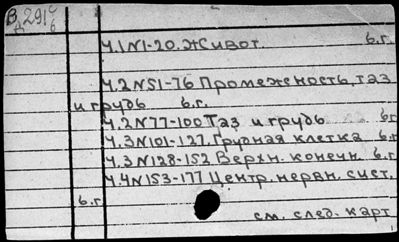 В 291 6
Д 6
Ч.1 N1-20. Живот. б.г.
Ч.2 N51-76 Промежность, таз
и грудь б.г.
Ч.2 N77-100 Таз и грудь б.г
Ч.3 N101-127. Грудная клетка б.г
Ч.3 N128-152 Верхн. конечн. б.г
Ч.4 N153-177 Центр. нервн. сист.
б.г
см. след. карт